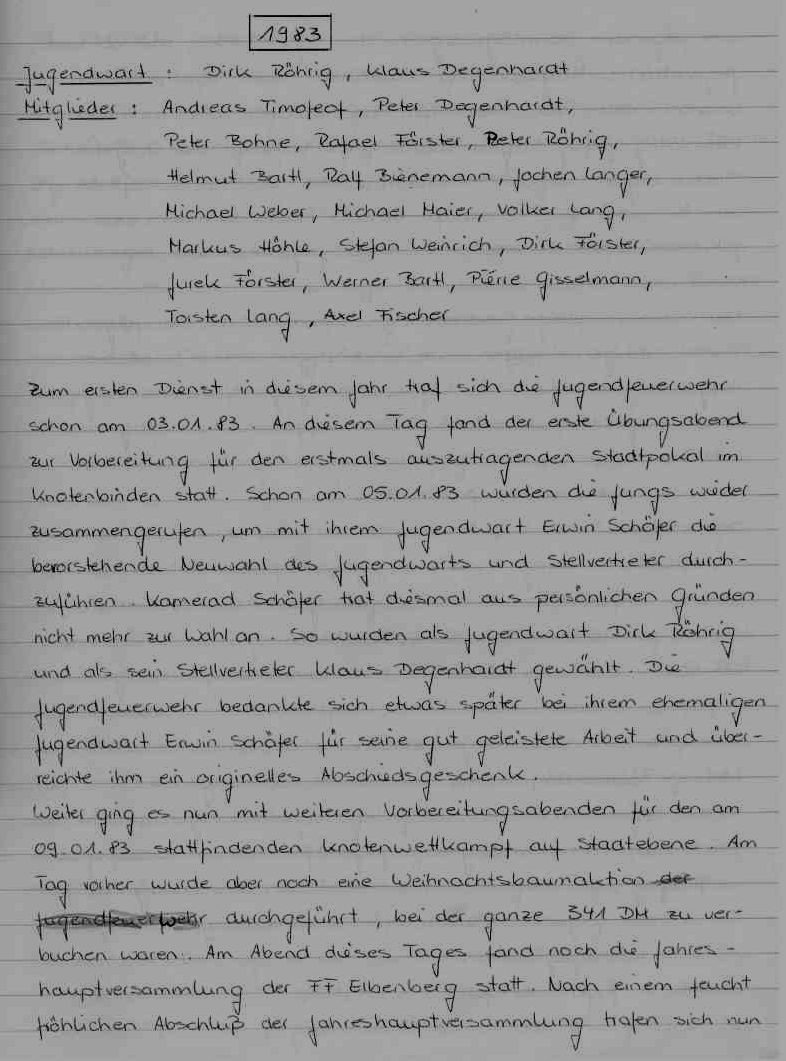 1983
Jugendwart : Dirk Röhrig, Klaus Degenhardt
Mitglieder : Andreas Timofeof, Peter Degenhardt,
Peter Bohne, Rafael Förster, Peter Röhrig,
Helmut Bartl, Ralf Bienemann, Jochen Langer,
Michael Weber, Michael Maier, Volker Lang,
Markus Höhle, Stefan Weinrich, Dirk Förster,
Jurek Förster, Werner Bartl, Piérre Gisselmann,
Torsten Lang, Axel Fischer
Zum ersten Dienst in diesem Jahr traf sich die Jugendfeuerwehr
schon am 03.01.83. An diesem Tag fand der erste Übungsabend
zur Vorbereitung für den erstmals auszutragenden Stadtpokal im
Knotenbinden statt. Schon am 05.01.83 wurden die Jungs wieder
zusammengerufen, um mit ihrem Jugendwart Erwin Schäfer die
bevorstehende Neuwahl des Jugendwarts und Stellvertreter durch-
zuführen. Kamerad Schäfer trat diesmal aus persönlichen Gründen
nicht mehr zur Wahl an. So wurden als Jugendwart Dirk Röhrig
und als sein Stellvertreter Klaus Degenhardt gewählt. Die
Jugendfeuerwehr bedankte sich etwas später bei ihrem ehemaligen
Jugendwart Erwin Schäfer für seine gut geleistete Arbeit und über-
reichte ihm ein originelles Abschiedsgeschenk.
Weiter ging es nun mit weiteren Vorbereitungsabenden für den am
09.01.83 stattfindenden Knotenwettkampf auf Stadtebene. Am
Tag vorher wurde aber noch eine Weihnachtsbaumaktion der
Jugendfeuerwehr durchgeführt, bei der ganze 341 DM zu ver-
buchen waren. Am Abend dieses Tages fand noch die Jahres-
hauptversammlung der FF Elbenberg statt. Nach einem feucht
fröhlichen Abschluß der Jahreshauptversammlung trafen sich nun